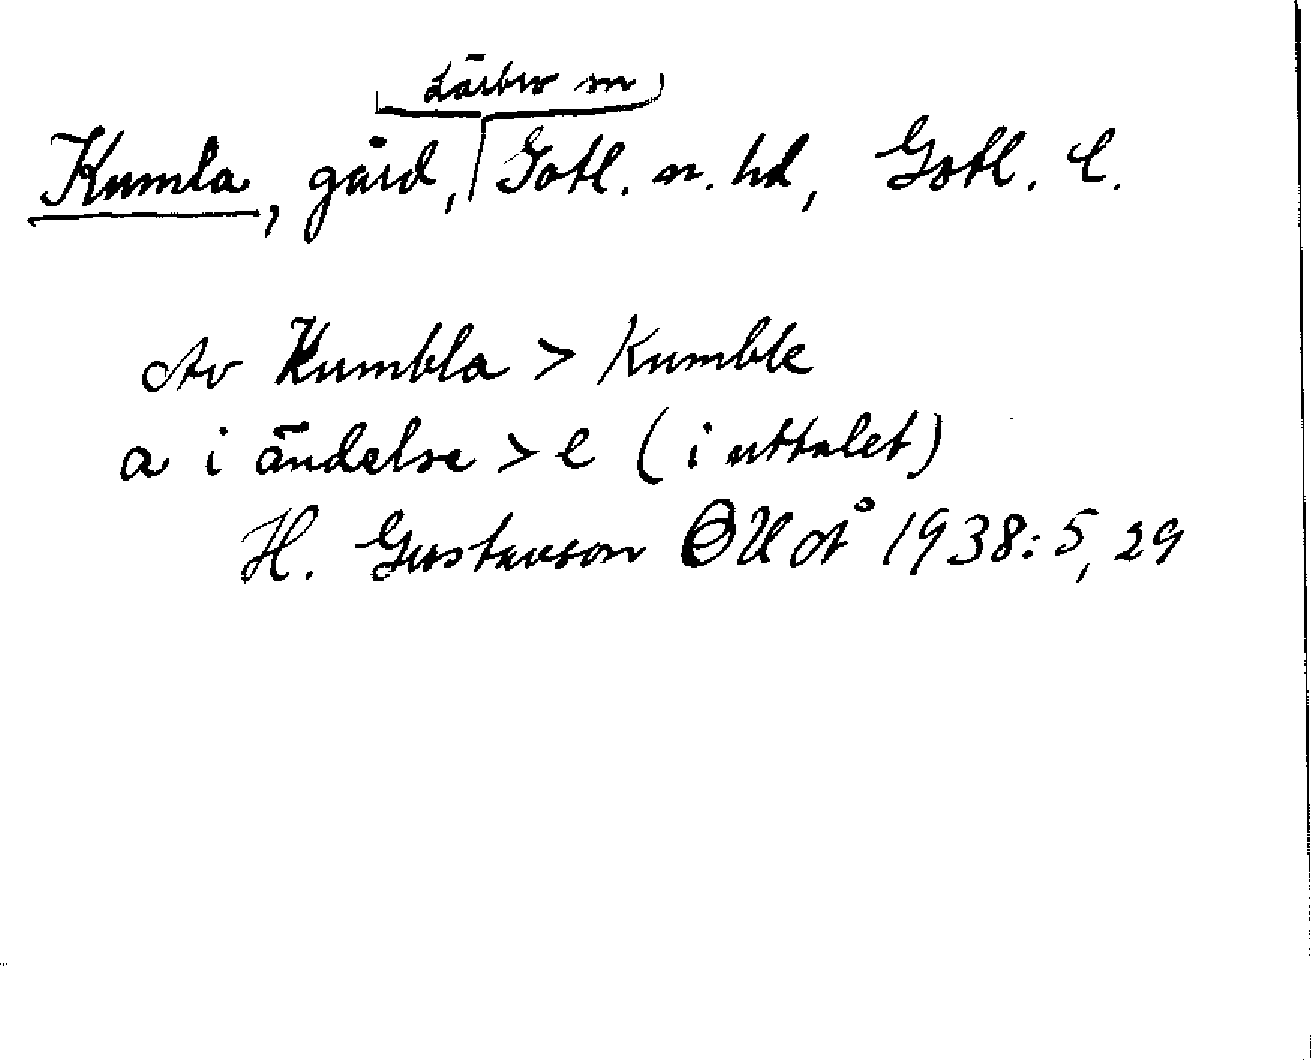 Lärbro sn
Kumla, gård, Gotl. n. hd, Gotl. l.
Av Kumbla > Kumble
a i ändelse > e (i uttalet)
H. Gustavson OUÅ 1938:5, 29